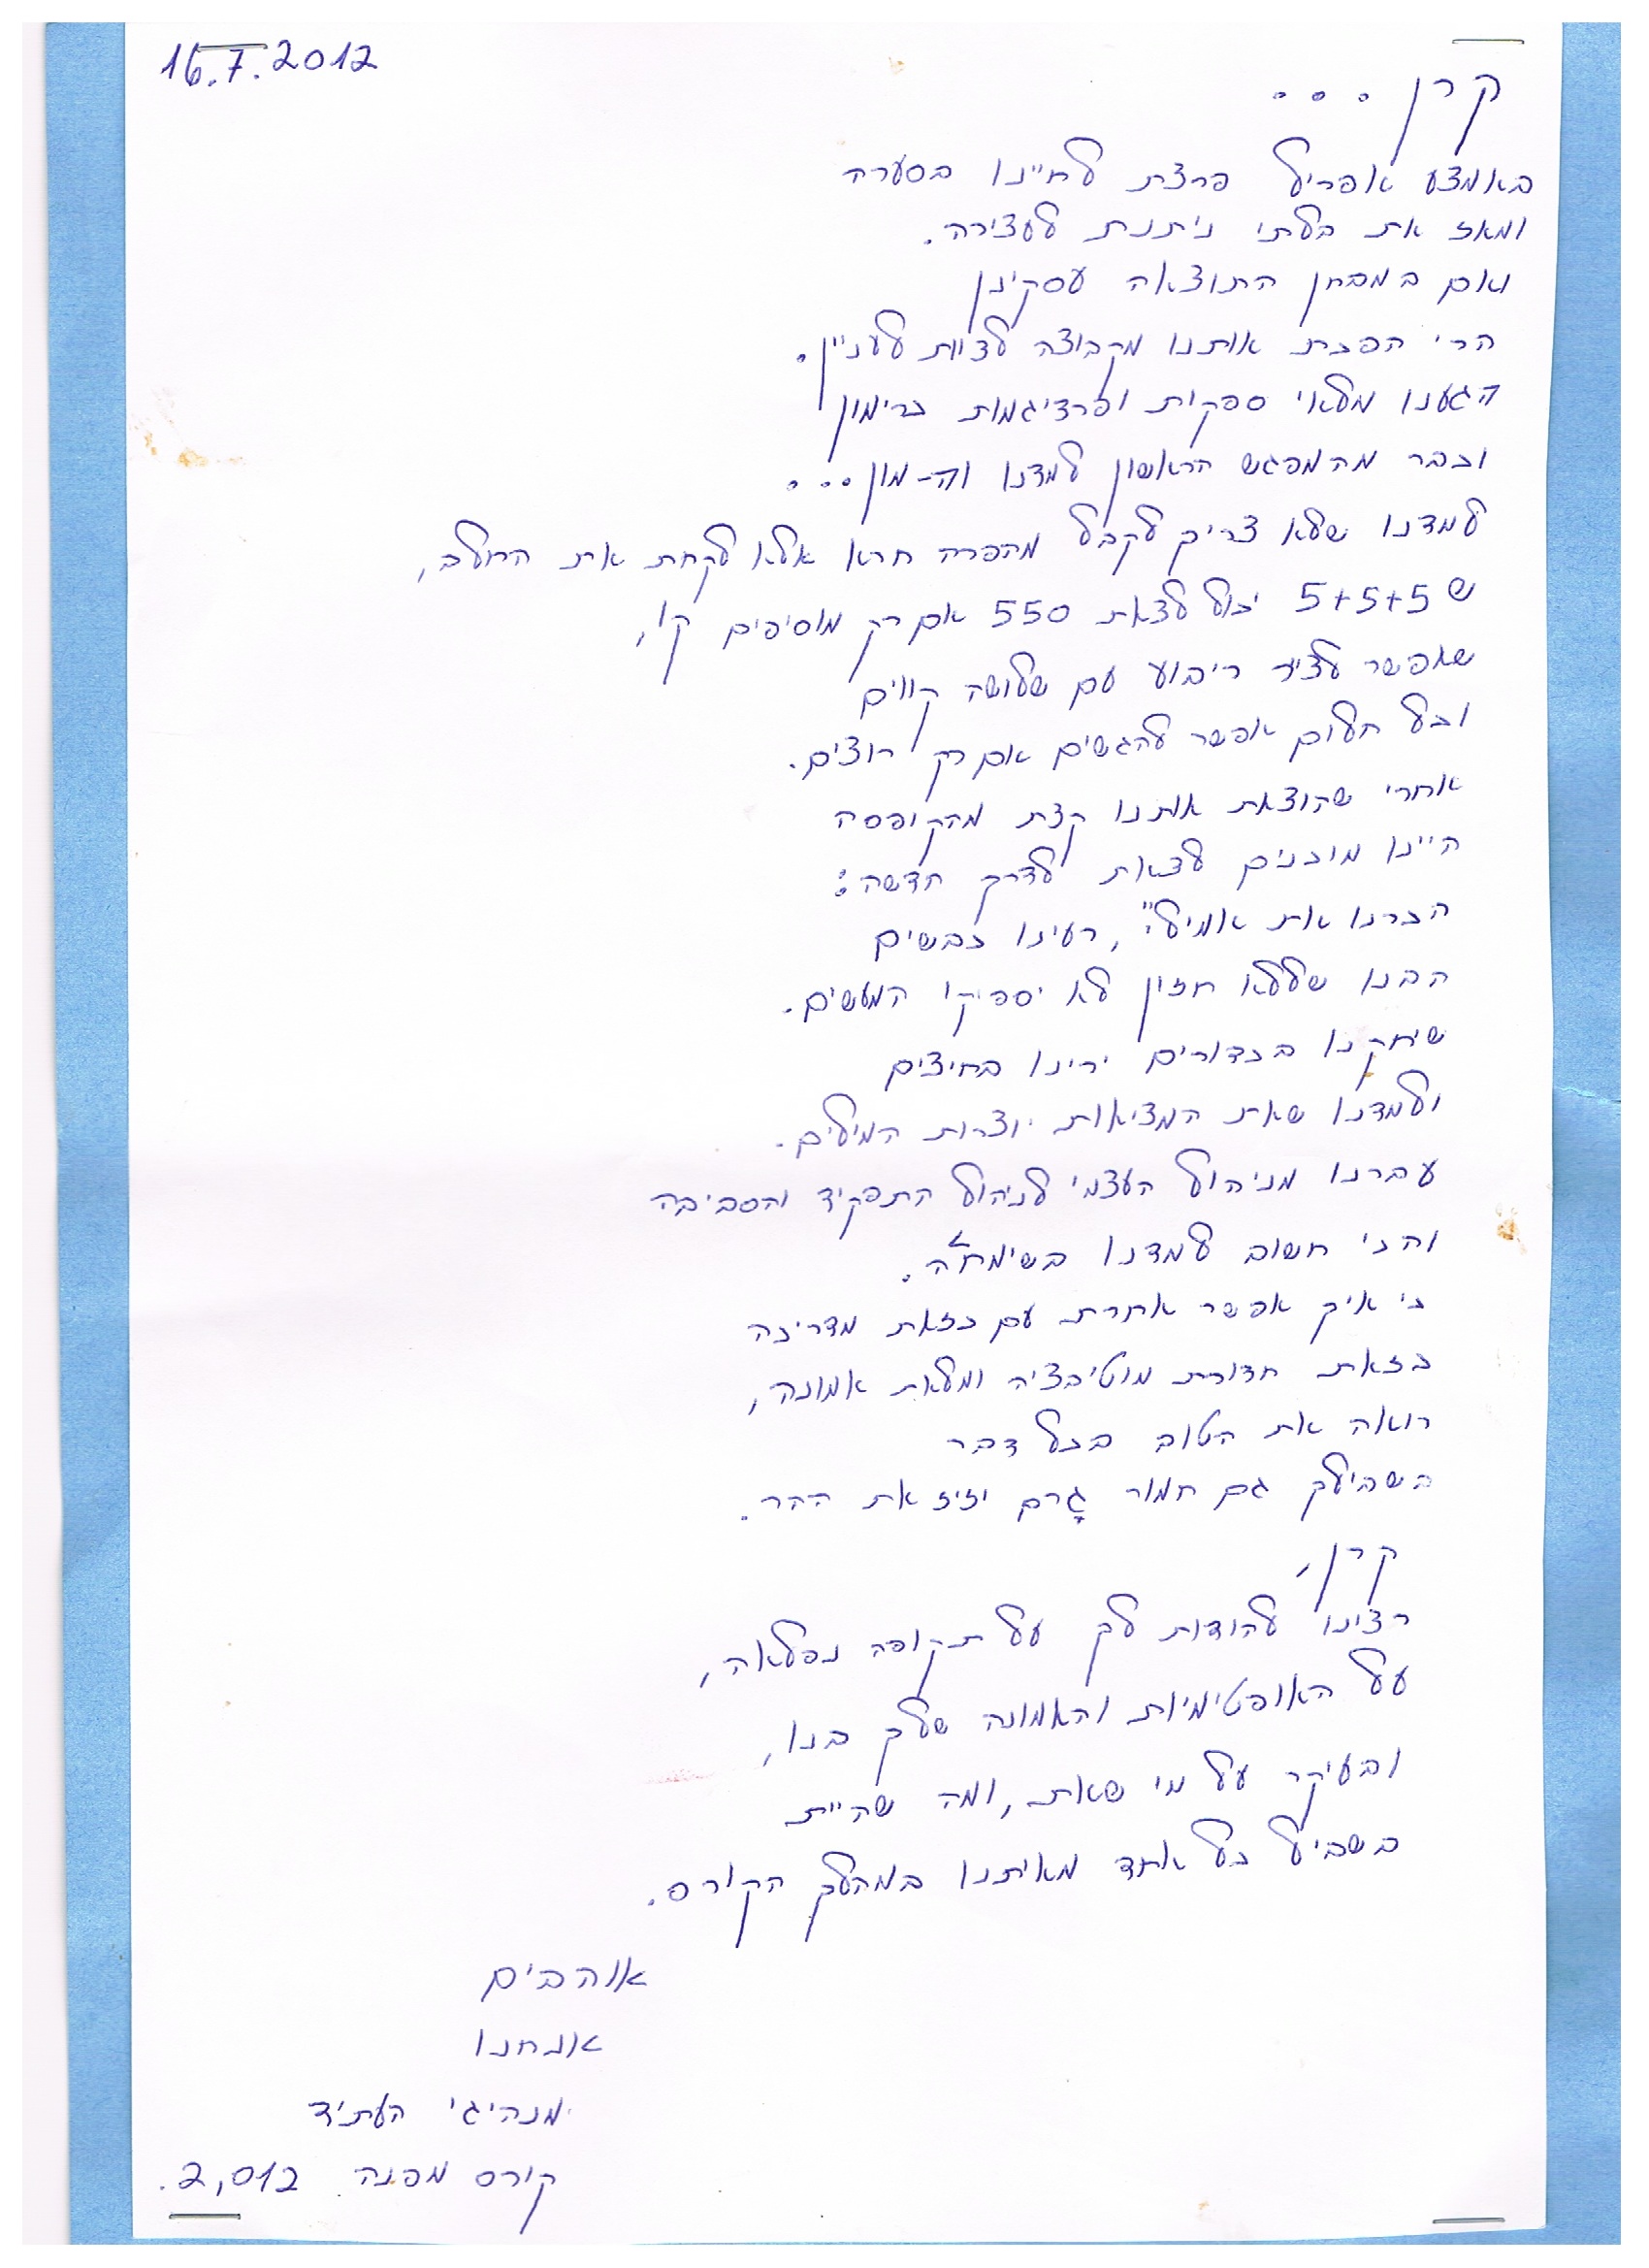 16.7.2012
קרן ...
באמצע אפריל פרצת לחיינו בסערה
ומאז את בלתי ניתנת לעצירה.
ואם במבחן התוצאה עסקינן
הרי הפכת אותנו מקבוצה לצוות לעניין.
הגענו מלאי ספקות ופרדיגמות כרימון
וכבר מהמפגש הראשון למדנו וה-מון...
למדנו שלא צריך לקבל מהפרה חרא אלא לקחת את החלב,
ש 5+5+5 יכול לצאת 550 אם רק מוסיפים קו,
שאפשר לצייר ריבוע עם שלושה קווים
וכל חלום אפשר להגשים אם רק רוצים.
אחרי שהוצאת אותנו קצת מהקופסה
היינו מוכנים לצאת לדרך חדשה:
הכרנו את אמיל"ה, רעינו כבשים
הבנו שללא חזון לא יספיקו המעשים.
שיחקנו בכדורים ירינו בחיצים
ולמדנו שאת המציאות יוצרות המילים.
עברנו מניהול העצמי לניהול התפקיד והסביבה
והכי חשוב למדנו בשימחה.
כי איך אפשר אחרת עם כזאת מדריכה
כזאת חדורת מוטיבציה ומלאת אמונה,
רואה את הטוב בכל דבר
השבילך גם חמור גָרם יזיז את ההר.
קרן,
רצינו להודות לך על תקופה נפלאה,
על האופטימיות והאמונה שלך בנו,
ובעיקר על מי שאת, ומה שהיית
בשביל כל אחד מאיתנו במהלך הקורס.
אוהבים
אנחנו
מנהיגי העתיד
קורס מפנה 2,012.